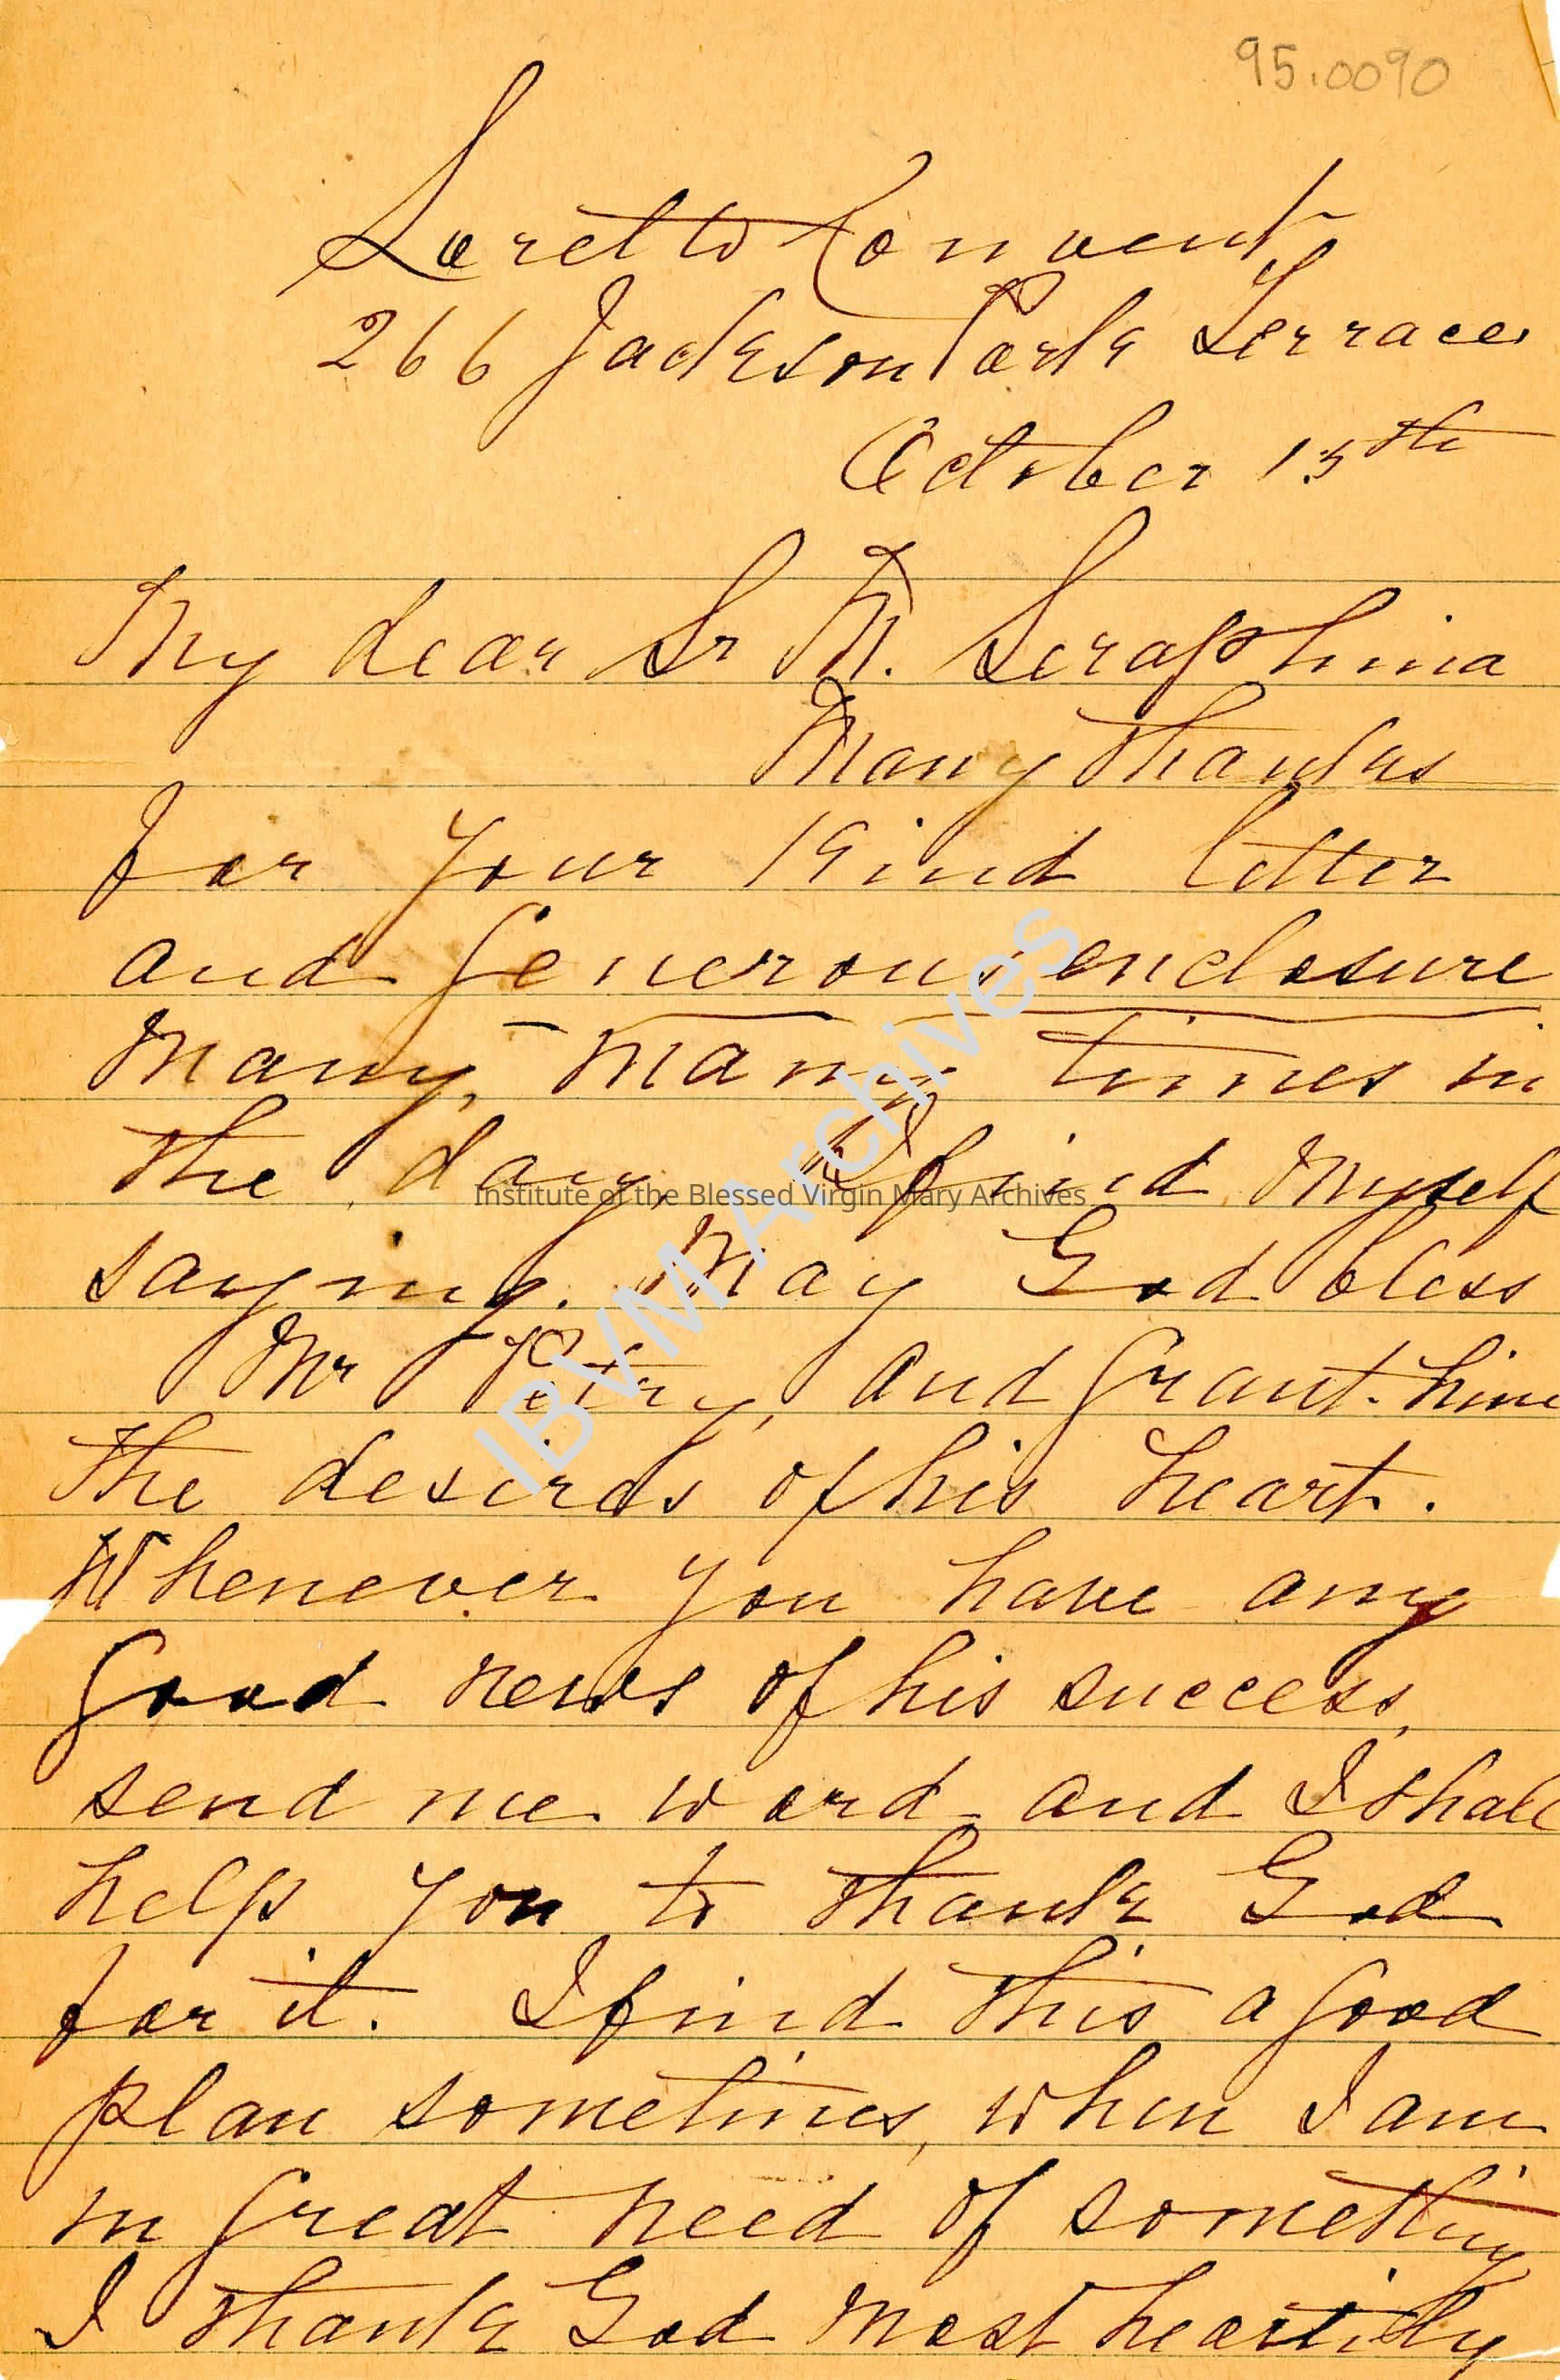 95.0090
Loretto Convent
266 Jackson Park Terrace
October 15th
My dear Sr M. Seraphina
Many thanks
for your kind letter
and generous enclosure
Many, many times in
the day, I find myself
saying. "May God bless
Mr Petry, and grant him
the desires of his heart.
Whenever you have any
good news of his success,
send me word and I shall
help you to thank God
for it. I find this a good
plan sometimes, when I am
in great need of something
I thank God most heartily
IBVM Archives
Institute of the Blessed Virgin Mary Archives